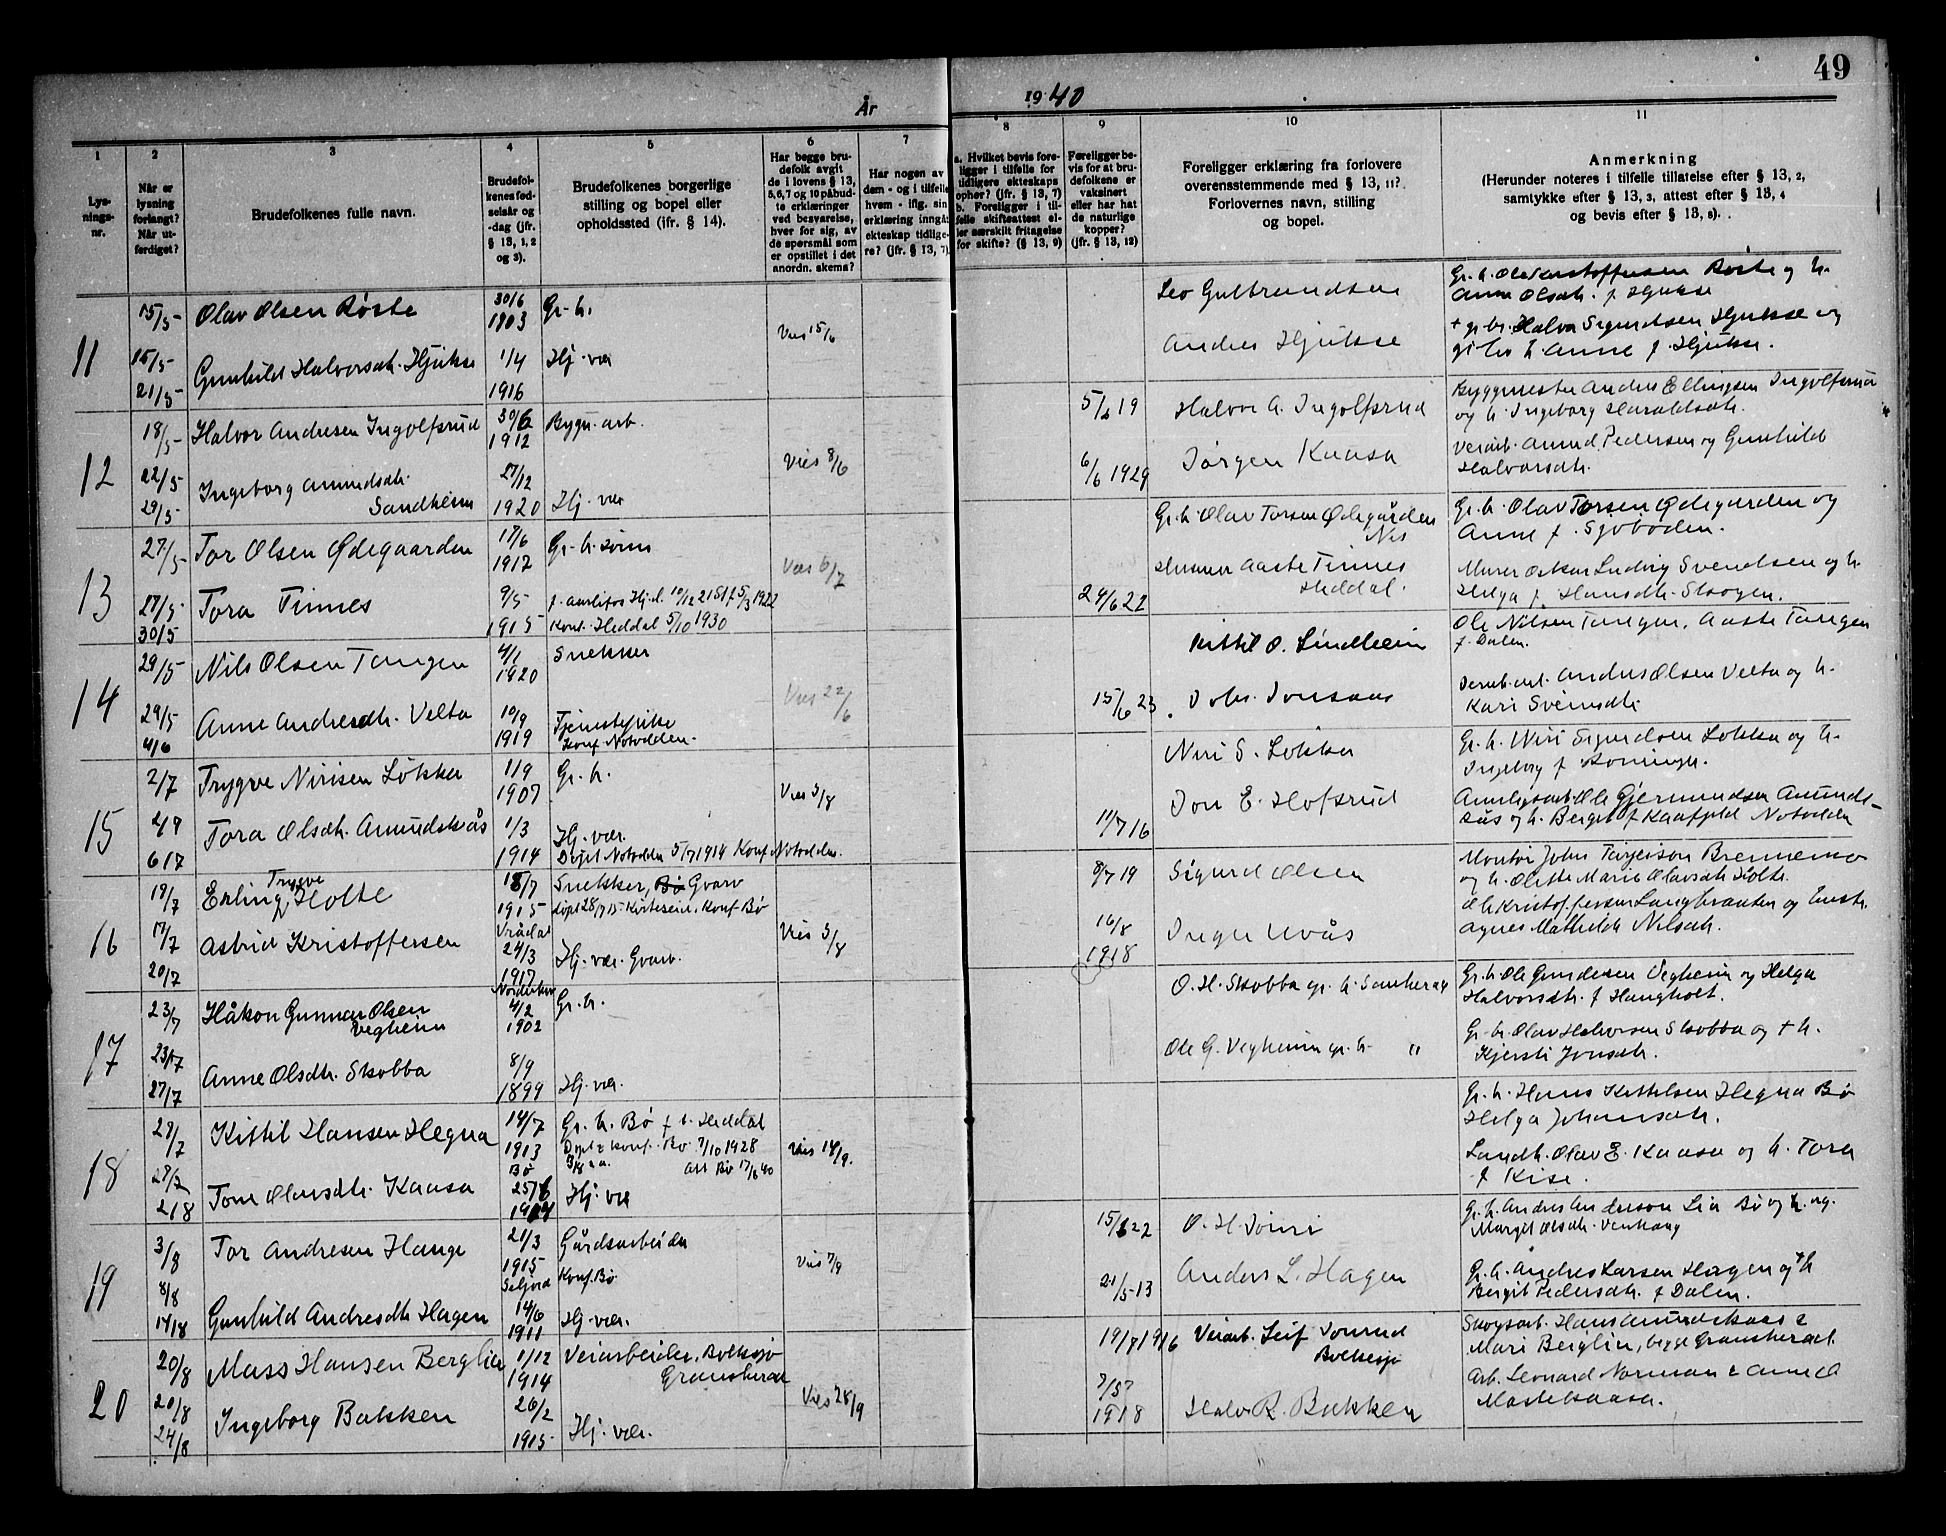 49
År 1940
1
2
3
4
5
6
7
8
9
10
11
Lys-
nings-
nr.
Når er
lysning
forlangt?
Når ut-
ferdiget?
Brudefolkenes fulle navn.
Brudefol-
kenes fød-
selsår og
-dag (jfr.
§ 13, 1, 2
og 3).
Brudefolkenes borgerlige
stilling og bopel eller
opholdssted (ifr. § 14).
Har begge bru-
defolk avgit
de i lovens § 13,
5, 6, 7 og 10 påbud-
te erklæringer
ved besvarelse,
hver for sig, av
de spørsmål som
er opstillet i det
anordn. skema?
Har nogen av
dem - og i tilfelle
hvem - iflg. sin
erklæring inngåt
ekteskap tidlige-
re? (jfr. § 13, 7)
a. Hvilket bevis fore-
ligger i tilfelle for
tidligere ekteskaps
ophør? (jfr. § 13, 7)
b. Foreligger i til-
felle skifteattest el-
ler særskilt fritagelse
for skifte? (§ 13, 9)
Foreligger be-
vis for at bru-
defolkene er
vaksinert
eller har hat
de naturlige
kopper?
(jfr. § 13, 12)
Foreligger erklæring fra forlovere
overensstemmende med § 13, 11?
Forlovernes navn, stilling
og bopel.
Anmerkning
(Herunder noteres i tilfelle tillatelse efter § 13, 2,
samtykke efter § 13, 3, attest efter § 13, 4
og bevis efter § 13, 8).
11
15/5
Olav Olsen Røste
30/6
1903
Gr. br.
Vies 15/6
Leo Gulbrandsen
Gr. br. Ole Kristoffersen Røste og h.
Anne Olsdtr. f. Hjukse
15/5
21/5
Gunhild Halvorsdtr. Hjukse
1/4
1916
Hj. vær
Andres Hjukse
+ gr. br. Halvor Sigurdsen Hjukse og
Anne f. Hjukse.
12
18/5
Halvor Andresen Ingolfsrud
30/6
1912
Bygn. arb.
Vies 8/6
5/6 19
Halvor A. Ingolfsrud
Byggmester Andres Ellingsen Ingolfsrud
og h. Ingeborg Haraldsdtr.
22/5
29/5
Ingeborg Amundsdtr.
Sandheim
27/12
1920
Hj. vær
6/6 1929
Jørgen Kaasa
Veiarb. Amund Pedersen og Gunhild
Halvorsdtr.
13
27/5
Tor Olsen Ødegaarden
17/6
1912
Gr. br. sønn
Vies 6/7
Gr. br. Olav Torsen Ødegården
Gr. br. Olav Torsen Ødegaarden og
Anne f. Sjøboden.
27/5
30/5
Tora Tinnes
9/5
1915
Konf. Heddal 5/10 1930
24/6 22
Aaste Tinnes
Heddal.
Murer Oskar Ludvig Svendsen og h.
Helga f. Hansdtr. Skogen.
14
29/5
Nils Olsen Tangen
4/1
1920
Snekker
Vies 22/6
Kittil O. Lindheim
Ole Nilsen Tangen, Aaste Tangen
f. Dalen.
29/5
4/6
Anne Andresdtr. Velta
10/9
1919
Tjenestepike
Konf. Notodden.
15/6 23
Johs. Jonsaas
Andres Olsen Velta og h.
Kari Sveinsdtr.
15
2/7
Trygve Nirisen Løkka
1/9
1907
Gr. br.
Vies 3/8
Niri S. Løkka
Gr. br. Niri Sigurdsen Løkka og h.
Ingeborg f.
2/7
6/7
Tora Olsdtr. Amundsås
1/3
1914
Hj. vær.
Døpt Notodden 5/7 1914 Konf. Notodden.
11/7 16
Jon E. Hofsrud
Anleggsarb. Ole Gjermundsen Amunds-
ås og h. Berget f. Kaafjeld Notodden
16
19/7
Trygve
Erling Holte
18/7
1915
Vrådal
Snekker, Bø Gvarv
døpt 28/7 15 Kirkeseid, Konf Bø
Vies 3/8
8/7 19
Sigurd Olsen
Montør John Torgeirson Brennemo
og h. Olette Marie Olavsdtr. Holte.
17/7
20/7
Astrid Kristoffersen
24/3
1917
Hj. vær. Gvarv.
16/8
1918
Inger Uvås
Ole Kristoffersen Langkraaten og
Agnes Mathilde Nilsdtr.
17
23/7
Håkon Gunnar Olsen
Vegheim
4/2
1902
Gr. br.
O. H. Skobba gr. br. Sauherad
Gr. br. Ole Gundersen Vegheim og Helga
Halvorsdtr. f. Haugholt.
23/7
27/7
Anne Olsdtr. Skobba
8/9
1899
Hj. vær.
Ole G. Vegheim gr. br. "
Gr. br. Olav Halvorsen Skobba og + h.
Kjersti Jonsdtr.
18
27/7
Kittil Hansen Hegna
14/7
1913
Bø
Gr. br. Bø f. t. Heddal
Døpt & konf. Bø 7/10 1928
Att Bø 17/6 40
Vies 14/9.
Gr. br. Hans Kittilsen Hegna Bø
Helga Johansdtr.
27/7
2/8
Tone Olavsdtr. Kaasa
25/6
Hj. vær
Landh. Olav E. Kaasa og h. Tora
f. Kise.
19
3/8
Tor Andresen Hauge
21/3
1915
Seljord
Gårdsarbeider
Konf. Bø
Vies 7/9
15/6 22
O. H. Doiri
Gr. br. Andres Anderson Lia Bø og h.
Margit Olsdtr.
8/8
14/8
Gunhild Andresdtr. Hagen
14/6
1911
Hj. vær.
21/5-13
Anders L. Hagen
Gr. br. Andres Larsen Hagen og + h
Bergit Pedersdtr. f. Dalen.
20
20/8
Mass Hansen Berglia
1/12
1914
Veiarbeider, Bolkesjø
Gransherad
Vies 28/9
19/7 1916
Veiarb. Leif Jonrud
Bolkesjø
Skogsarb. Hans Amundskaas &
Mari Berglia, begge Gransherad.
20/8
24/8
Ingeborg Bakken
26/2
1915
Hj. vær.
1918
Halv R. Bakken
Arb. Leonard Norman & Anne O